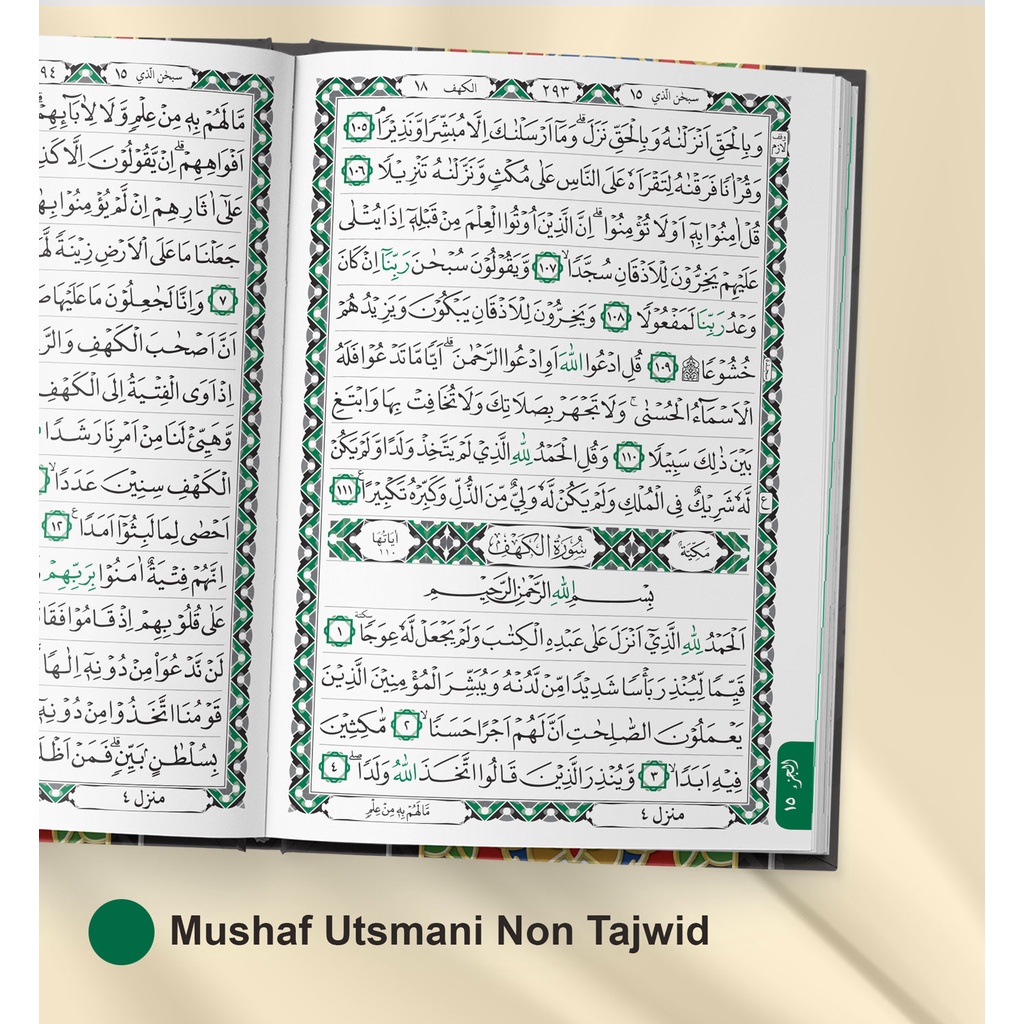 سبحن الذي ١٥
٢٩٣
الكهف ١٨
وَبِالْحَقِّ اَنْزَلْنٰهُ وَبِالْحَقِّ نَزَلَۗ وَمَآ اَرْسَلْنٰكَ اِلَّا مُبَشِّرًا وَّنَذِيْرًاۘ ١٠٥
وَقُرْاٰنًا فَرَقْنٰهُ لِتَقْرَاَهٗ عَلَى النَّاسِ عَلٰى مُكْثٍ وَّنَزَّلْنٰهُ تَنْزِيْلًا ١٠٦
قُلْ اٰمِنُوْا بِهٖٓ اَوْ لَا تُؤْمِنُوْاۗ اِنَّ الَّذِيْنَ اُوْتُوا الْعِلْمَ مِنْ قَبْلِهٖٓ اِذَا يُتْلٰى
عَلَيْهِمْ يَخِرُّوْنَ لِلْاَذْقَانِ سُجَّدًاۙ ١٠٧ وَّيَقُوْلُوْنَ سُبْحٰنَ رَبِّنَآ اِنْ كَانَ
وَعْدُ رَبِّنَا لَمَفْعُوْلًا ١٠٨ وَيَخِرُّوْنَ لِلْاَذْقَانِ يَبْكُوْنَ وَيَزِيْدُهُمْ
خُشُوْعًا۩ ١٠٩ قُلِ ادْعُوا اللّٰهَ اَوِ ادْعُوا الرَّحْمٰنَۗ اَيًّا مَّا تَدْعُوْا فَلَهُ
الْاَسْمَاۤءُ الْحُسْنٰىۚ وَلَا تَجْهَرْ بِصَلَاتِكَ وَلَا تُخَافِتْ بِهَا وَابْتَغِ
بَيْنَ ذٰلِكَ سَبِيْلًا ١١٠ وَقُلِ الْحَمْدُ لِلّٰهِ الَّذِيْ لَمْ يَتَّخِذْ وَلَدًا وَّلَمْ يَكُنْ
لَّهٗ شَرِيْكٌ فِى الْمُلْكِ وَلَمْ يَكُنْ لَّهٗ وَلِيٌّ مِّنَ الذُّلِّ وَكَبِّرْهُ تَكْبِيْرًا ࣖ ١١١
مَكِّيَّة سُوْرَةُ الْكَهْفِ اٰيَاتُهَا ١١٠
بِسْمِ اللّٰهِ الرَّحْمٰنِ الرَّحِيْمِ
اَلْحَمْدُ لِلّٰهِ الَّذِيْٓ اَنْزَلَ عَلٰى عَبْدِهِ الْكِتٰبَ وَلَمْ يَجْعَلْ لَّهٗ عِوَجًا ١
قَيِّمًا لِّيُنْذِرَ بَأْسًا شَدِيْدًا مِّنْ لَّدُنْهُ وَيُبَشِّرَ الْمُؤْمِنِيْنَ الَّذِيْنَ
يَعْمَلُوْنَ الصّٰلِحٰتِ اَنَّ لَهُمْ اَجْرًا حَسَنًاۙ ٢ مَّاكِثِيْنَ
فِيْهِ اَبَدًاۙ ٣ وَّيُنْذِرَ الَّذِيْنَ قَالُوا اتَّخَذَ اللّٰهُ وَلَدًاۖ ٤
منزل ٤
مَّا لَهُمْ بِهٖ مِنْ عِلْمٍ
الجزء ١٥
سبحن الذي ١٥
٩٤
مَّا لَهُمْ بِهٖ مِنْ عِلْمٍ وَّلَا لِاٰبَاۤىِٕهِمْ
اَفْوَاهِهِمْۗ اِنْ يَّقُوْلُوْنَ اِلَّا
عَلٰٓى اٰثَارِهِمْ اِنْ لَّمْ يُؤْمِنُوْا
جَعَلْنَا مَا عَلَى الْاَرْضِ زِيْنَةً
٧ وَاِنَّا لَجٰعِلُوْنَ مَا عَلَيْهَا
اَنَّ اَصْحٰبَ الْكَهْفِ
اِذْ اَوَى الْفِتْيَةُ اِلَى الْكَهْفِ
وَّهَيِّئْ لَنَا مِنْ اَمْرِنَا رَشَدًا
الْكَهْفِ سِنِيْنَ عَدَدًاۙ
اَحْصٰى لِمَا لَبِثُوْٓا اَمَدًا ࣖ ١٢
اِنَّهُمْ فِتْيَةٌ اٰمَنُوْا بِرَبِّهِمْ
عَلٰى قُلُوْبِهِمْ اِذْ قَامُوْا
لَنْ نَّدْعُوَا۟ مِنْ دُوْنِهٖٓ اِلٰهًا
قَوْمُنَا اتَّخَذُوْا مِنْ دُوْنِهٖٓ
بِسُلْطٰنٍۢ بَيِّنٍۗ فَمَنْ
منزل ٤
Mushaf Utsmani Non Tajwid